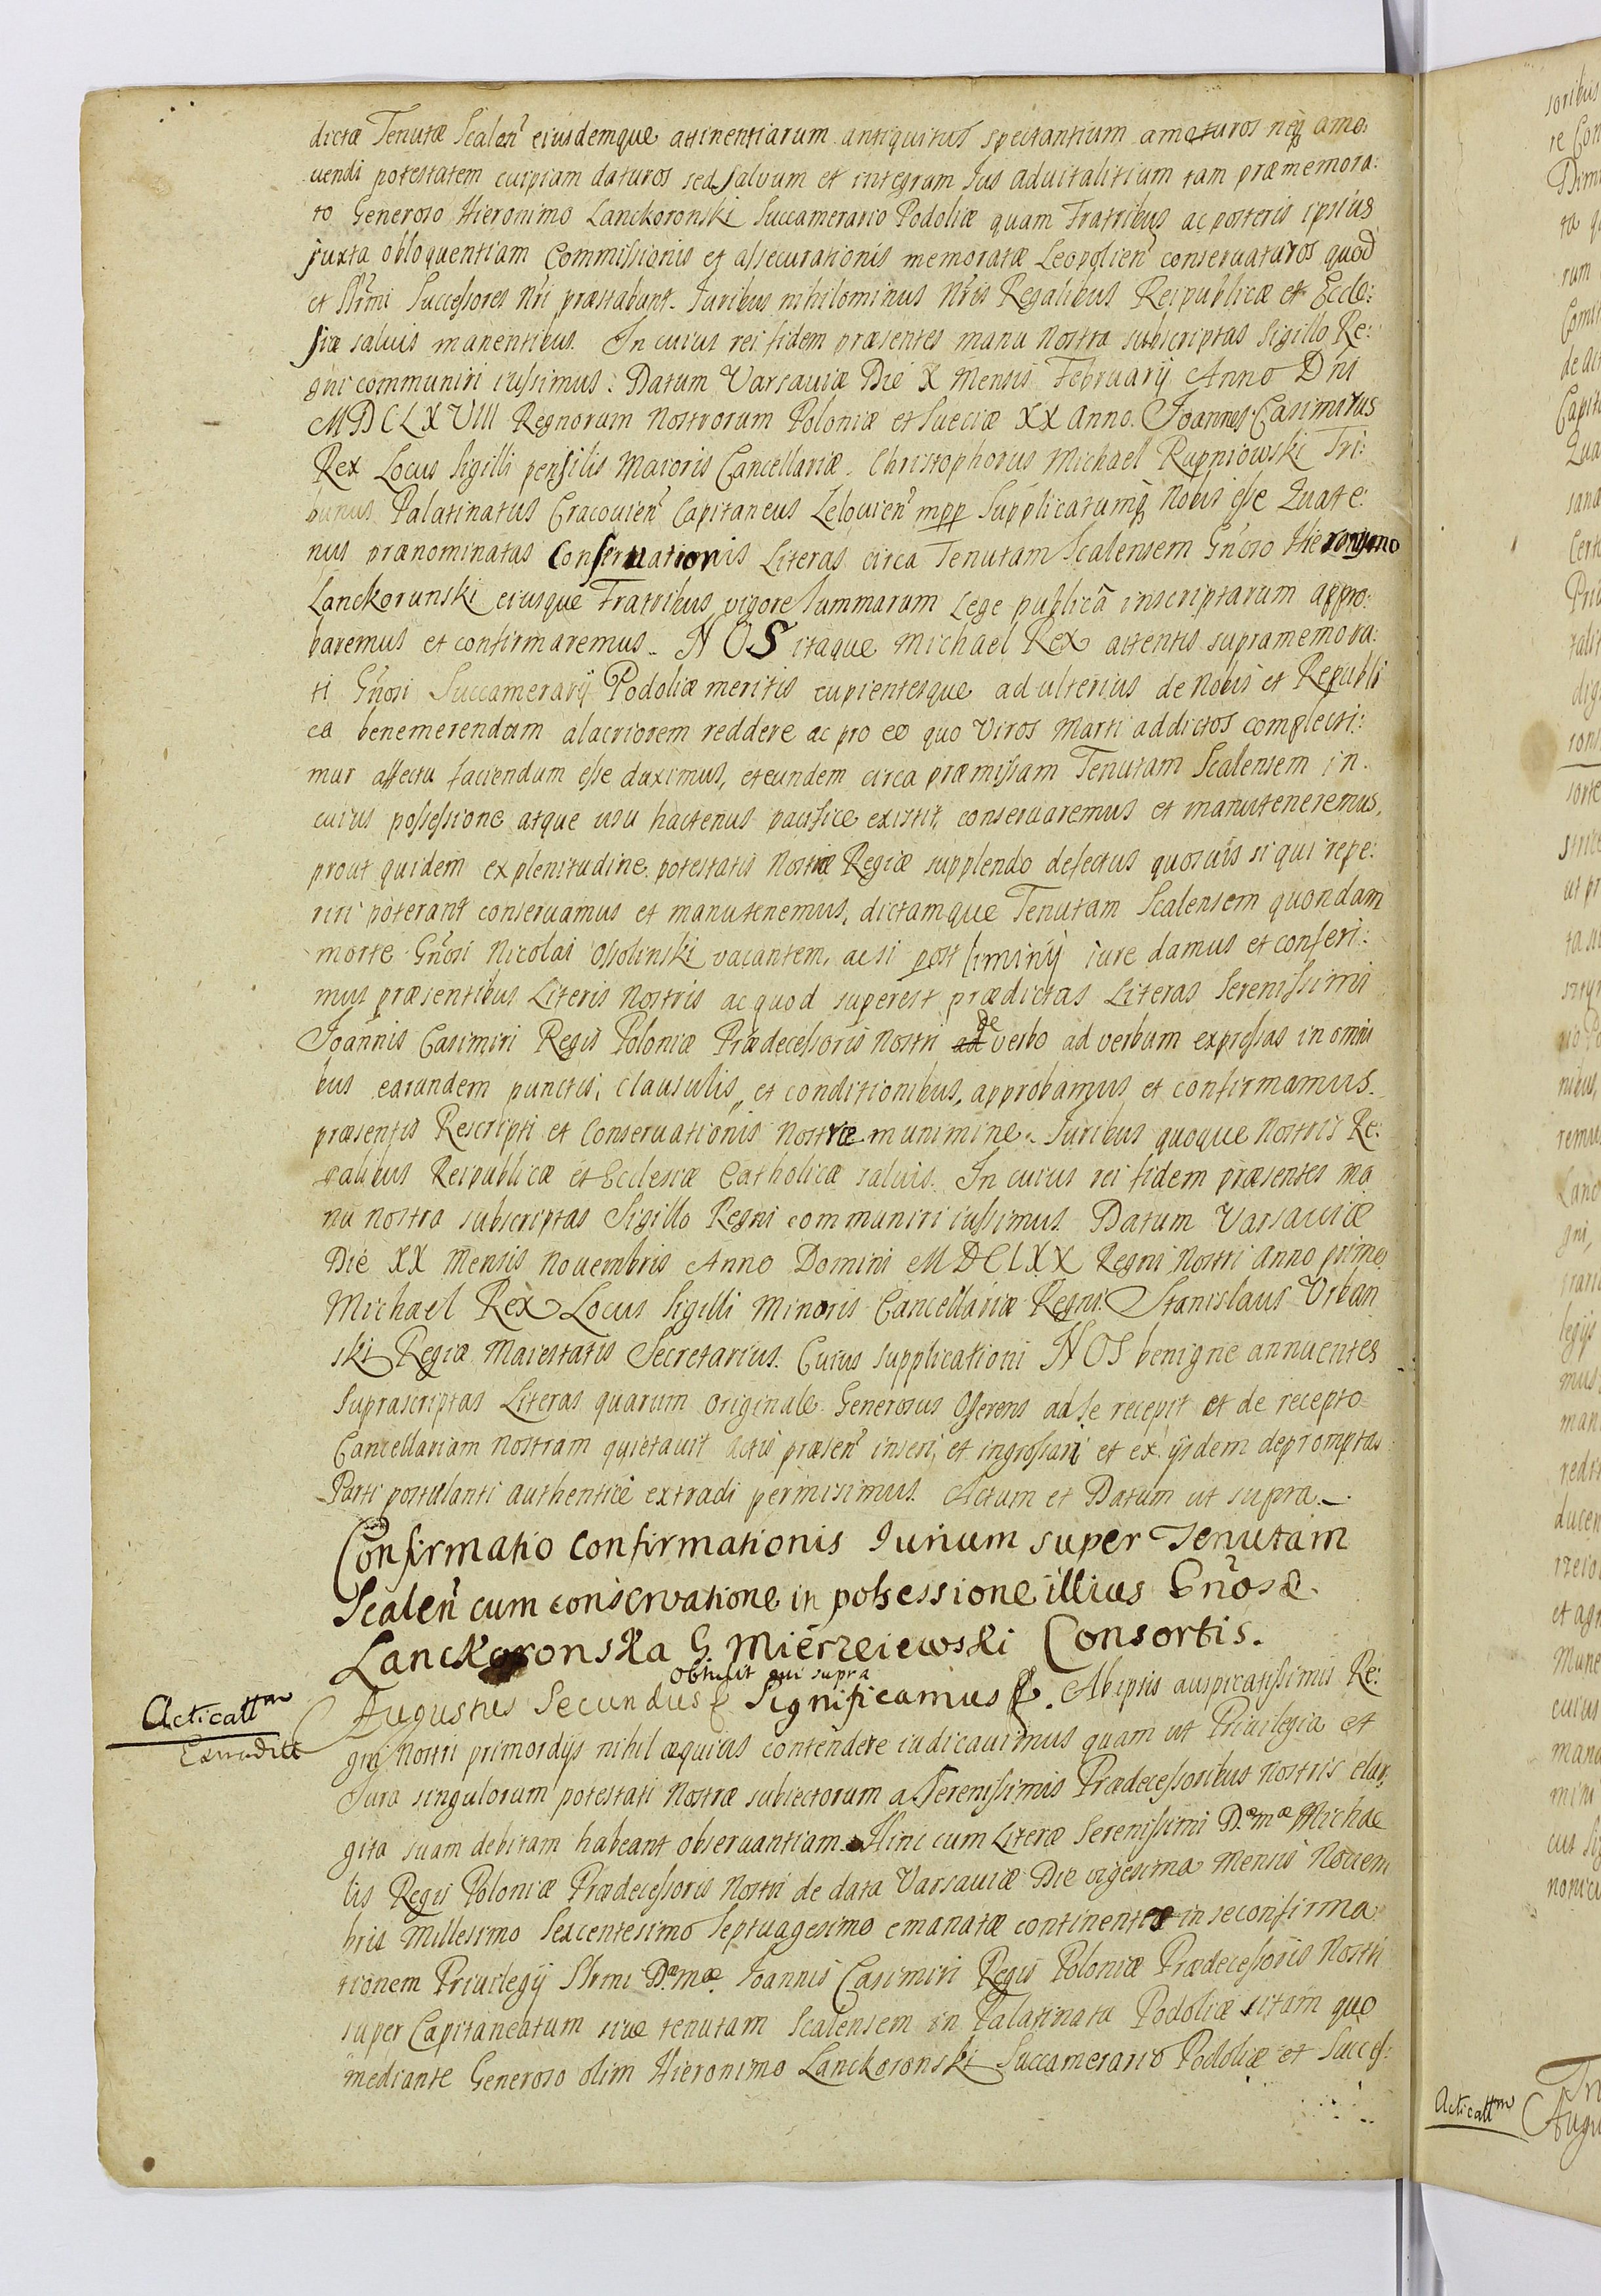 dictæ Tenutæ Scalen̄ eiusdemque attinentiarum antiquitus spectantium amoturos neq́ꝫ amo:
uendi potestatem cuipiam daturos sed saluum et integrum Ius aduitalitium tam præmemora:
to Generoso Hieronimo Lanckoronski Succamerario Podoliæ quam Fratribus ac posteris ipsius
juxta obloquentiam Commissionis et assecurationis memoratæ Leopolien̄ conseruaturos quod
et Sr̄mi Successores nr̄i præstabunt. Iuribus nihilominus Nr̄is Regalibus Reipublicæ et Eccle:
siæ saluis manentibus. In cuius rei fidem præsentes manu nostra subscriptas Sigillo Re:
gni communiri iussimus. Datum Varsauiæ Die X Mensis Februarij Anno Dn̄i
MDCLXVIII Regnorum Nostrorum Poloniæ et Sueciæ XX Anno. Ioannes Casimirus
Rex Locus Sigilli pensilis Maioris Cancellariæ. Christophorus Michael Rupniowski Tri:
bunus Palatinatus Cracouien̄ Capitaneus Zelouien̄ mpp Supplicatumq́ꝫ Nobis esse Quate:
nus prænominatas Conseruationis Literas circa Tenutam Scalensem Gn̄oso Hieronymo
Lanckorunski eiusque Fratribus vigore Summarum Lege publicâ inscriptarum appro:
baremus et confirmaremus. NOS itaque Michael Rex attentis supramemora:
ti Gn̄osi Succamerarij Podoliæ meritis cupientesque ad ulterius de Nobis et Republi
ca benemerendum alacriorem reddere ac pro eo quo Viros Marti addictos complecti:
mur affectu faciendum esse duximus, et eundem circa præmissam Tenutam Scalensem in
cuius possessione atque usu hactenus pacifice existit, conseruaremus et manuteneremus,
prout quidem ex plenitudine potestatis Nostræ Regiæ supplendo defectus quosuis si qui repe:
riri poterant conseruamus et manutenemus, dictamque Tenutam Scalensem quondam
morte Gn̄osi Nicolai Ossolinski vacantem, ac si post liminij iure damus et conferi:
mus præsentibus Literis Nostris ac quod superest prædictas Literas Serenissimi
Ioannis Casimiri Regis Poloniæ Prædecessoris Nostri de verbo ad verbum expressas in omni
bus earundem punctis, clausulis, et conditionibus, approbamus et confirmamus
præsentis Rescripti et Conseruationis Nostræ munimine. Iuribus quoque Nostris Re:
galibus Reipublicæ et Ecclesiæ Catholicæ saluis. In cuius rei fidem præsentes ma
nu nostra subscriptas Sigillo Regni communiri iussimus. Datum Varsauiæ
Die XX Mensis Nouembris Anno Domini MDCLXX Regni Nostri Anno primo
Michael Rex Locus Sigilli Minoris Cancellariæ Regni. Stanislaus Urban
ski Regiæ Maiestatis Secretarius. Cuius Supplicationi NOS benigne annuentes
Suprascriptas Literas quarum originale Generosus Offerens ad se recepit et de recepto
Cancellariam Nostram quietauit Actis præsen̄ inseri, et ingrossari et ex ijsdem depromptas
Parti postulanti authentice extradi permisimus. Actum et Datum ut supra.
Confirmatio confirmationis Iurium super Tenutam
Scalen̄ cum conservatione in possessione illius Gn̄osæ
Lanckoronska G. Mierzeiewski Consortis.
Obtulit qui supra
Acticattm
Extraditt
Augustus Secundus Significamus. Ab ipsis auspicatissimis Re:
gni Nostri primordijs nihil æquius contendere iudicauimus quam ut Priuilegia et
Iura singulorum potestati Nostræ subiectorum a Serenissimis Prædecessoribus Nostris elar
gita suam debitam habeant obseruantiam. Hinc cum Literæ Serenissimi Dæmæ Michae
lis Regis Poloniæ Prædecessoris Nostri de data Varsauiæ Die vigesima Mensis Nouem
bris Millesimo Sexcentesimo Septuagesimo emanatæ continentes in se confirma
tionem Priuilegij Sr̄mi Dæmæ Ioannis Casimiri Regis Poloniæ Prædecessoris Nostri
super Capitaneatum siue tenutam Scalensem in Palatinatu Podoliæ sitam quo
mediante Generoso olim Hieronimo Lanckoronski Succamerario Podoliæ et Succes:
Acticattm